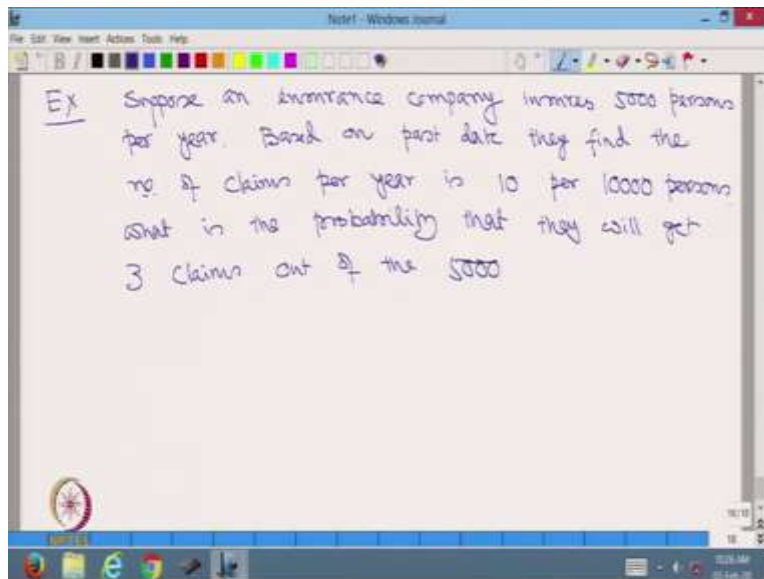 Note1 - Windows Journal
File Edit View Insert Actions Tools Help
Ex Suppose an insurance company insures 5000 persons
per year. Based on past date they find the
no. of claims per year is 10 per 10000 persons
what is the probability that they will get
3 claims out of the 5000
NPTEL